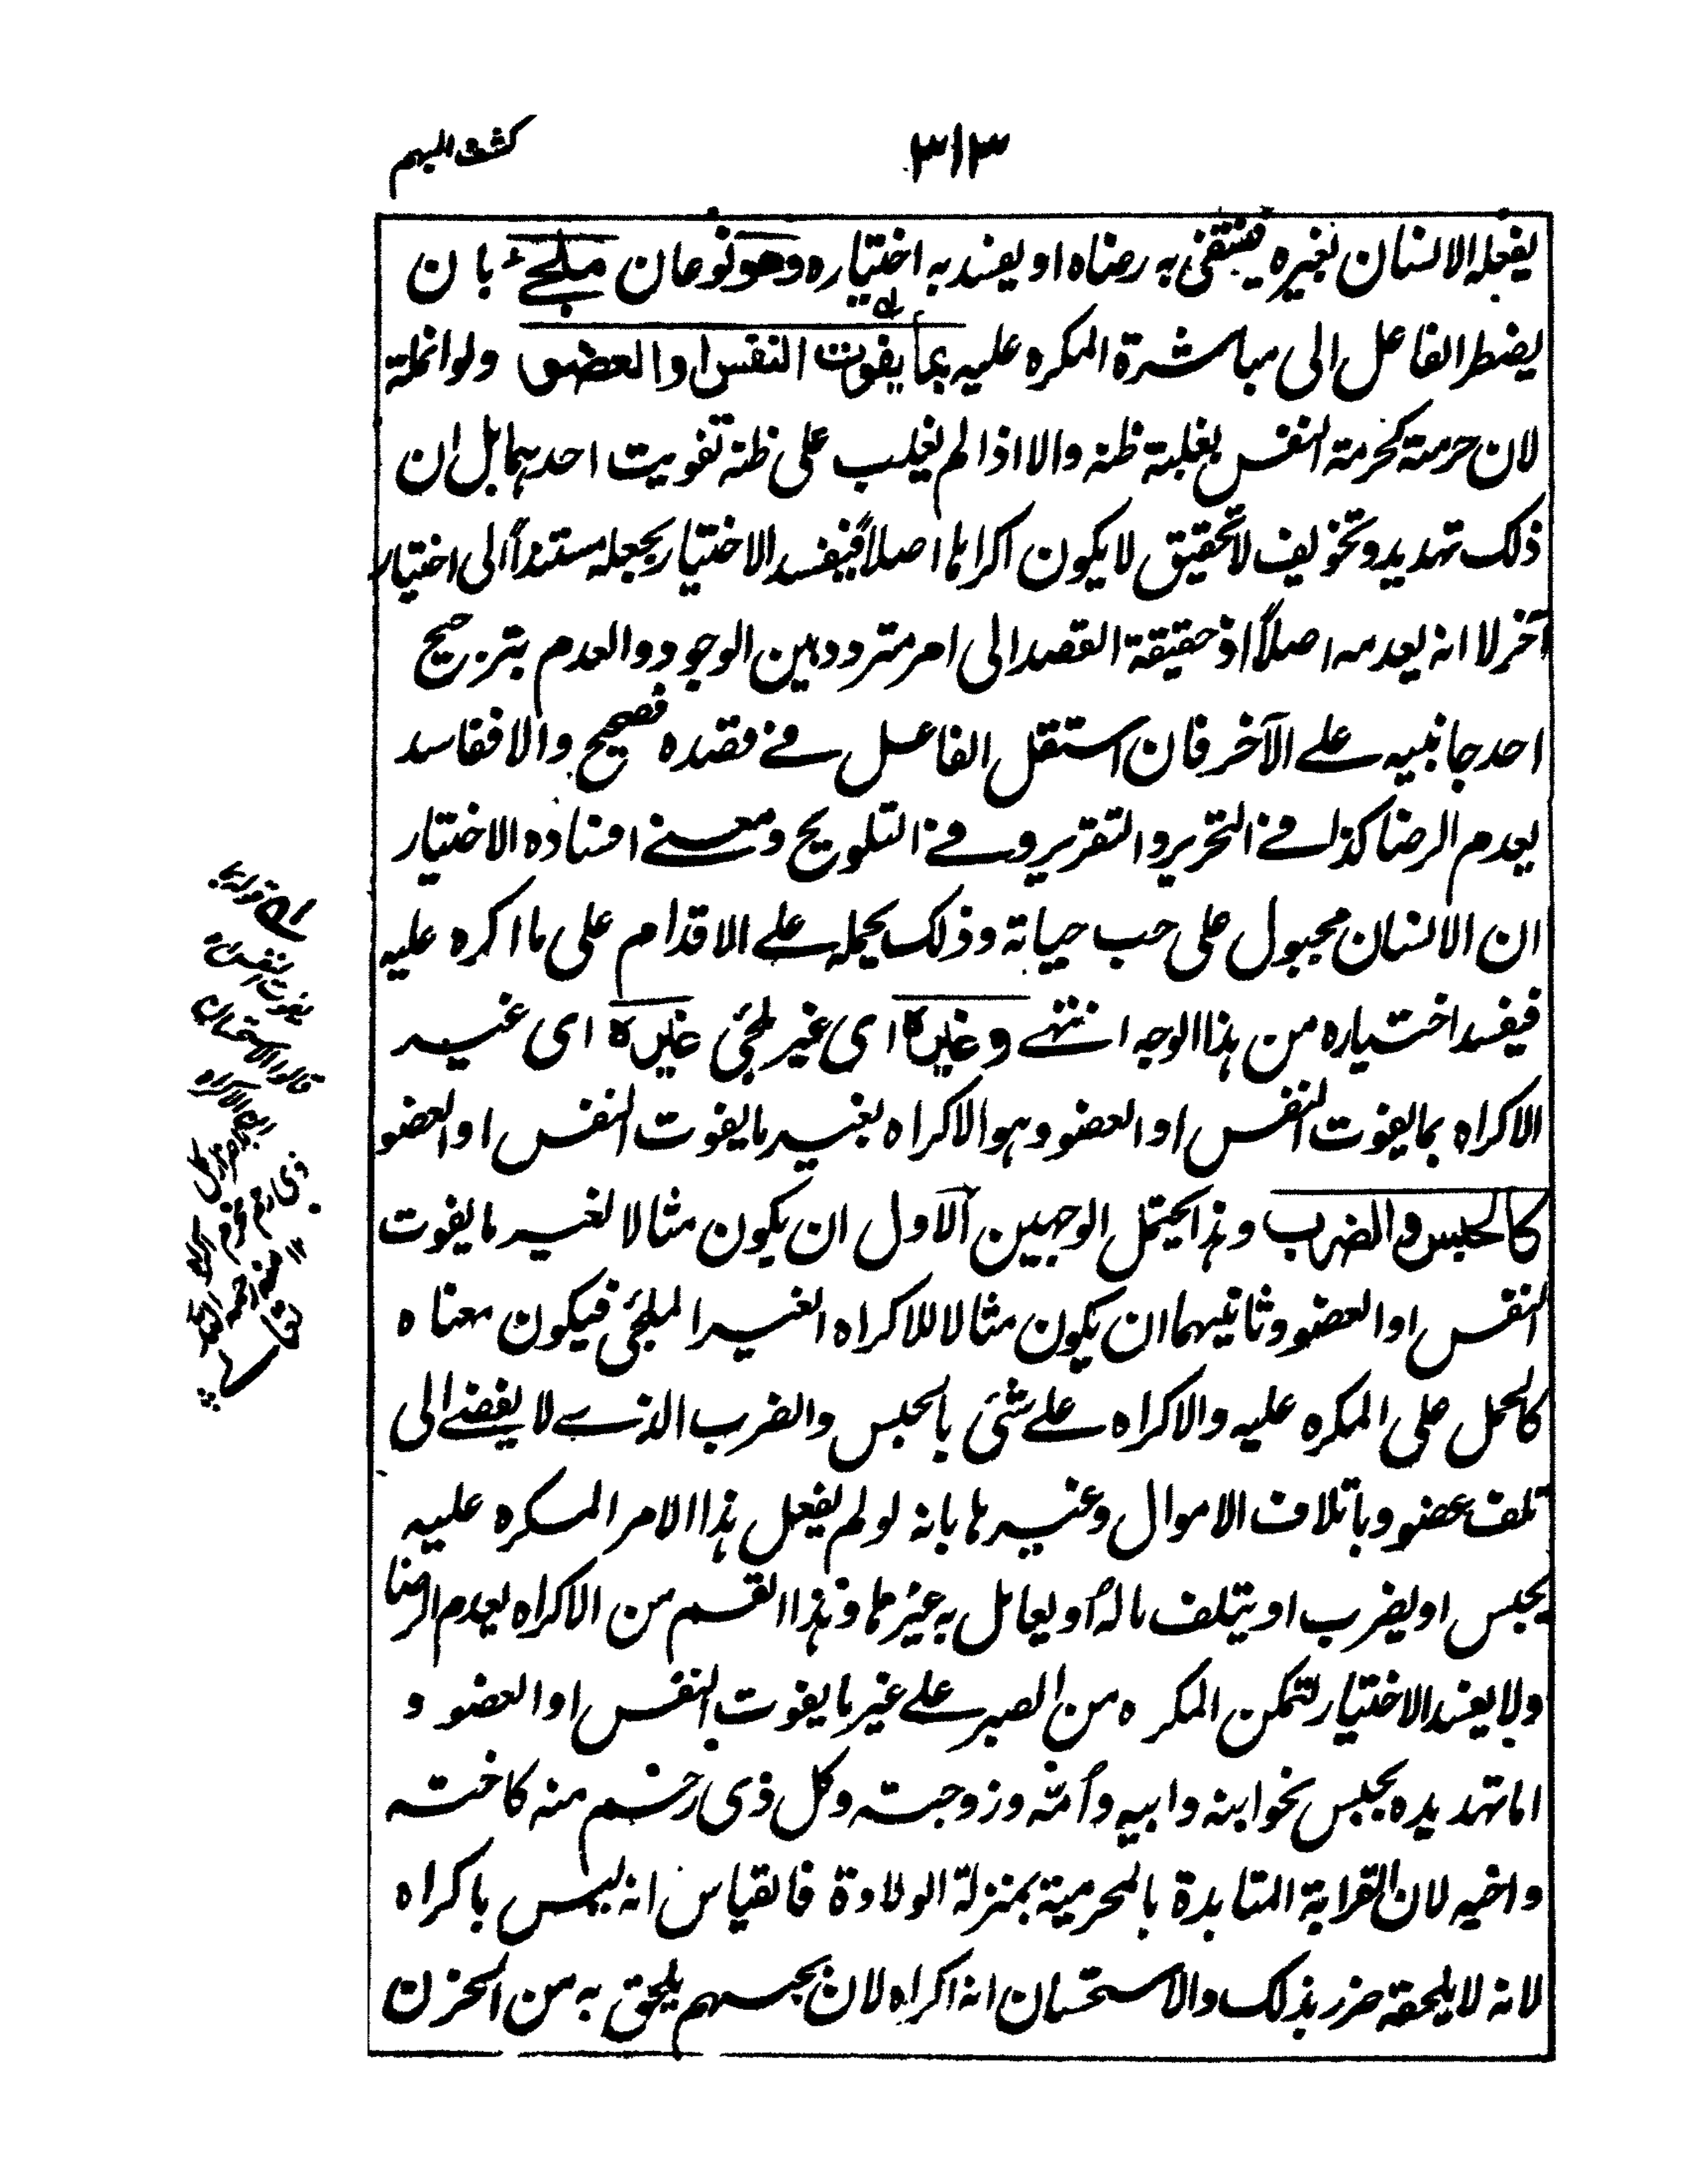 ٣١٣
كشف المبهم
يفعله الانسان بغيره فينتفى به رضاه او يفسد به اختياره وهو نوعان ملجئ بان
يضطر الفاعل الى مباشرة المكره عليه بما يفوت النفس او العضو ولو انملة
لان حرمته كحرمة النفس بغلبة ظنه والا اذا لم يغلب على ظنه تفويت احدهما بل ان
ذلك تهديد وتخويف لا تحقيق لا يكون اكراها اصلاً فيفسد الاختيار بجعله مستنداً الى اختيار
آخر لا انه يعدمه اصلاً اذ حقيقة القصد الى امر متردد بين الوجود والعدم بترجيح
احد جانبيه على الآخر فان استقل الفاعل فى قصده فصحيح والا ففاسد
يعدم الرضا كذا فى التحرير والتقرير وفى التلويح ومعنى افساده الاختيار
ان الانسان مجبول على حب حياته وذلك يحمله على الاقدام على ما اكره عليه
فيفسد اختياره من هذا الوجه انتهى وغيره اى غير ملجئ غيره اى غير
الاكراه بما يفوت النفس او العضو وهو الاكراه بغير ما يفوت النفس او العضو
كالحبس والضرب وهذا يحتمل الوجهين الاول ان يكون مثالا لغير ما يفوت
النفس او العضو وثانيهما ان يكون مثالا للاكراه الغير الملجئ فيكون معناه
كالحمل على المكره عليه والاكراه على شئ بالحبس والضرب الذى لا يفضى الى
تلف عضو وباتلاف الاموال وغيرها بانه لو لم يفعل هذا الامر المكره عليه
يحبس او يضرب او يتلف ماله او يعامل به غيرها وهذا القسم من الاكراه يعدم الرضا
ولا يفسد الاختيار لتمكن المكره من الصبر على غير ما يفوت النفس او العضو و
اما تهديده بحبس نحو ابنه وابيه وأمه وزوجته وكل ذى رحم منه كاخته
واخيه لان القرابة المتابدة بالمحرمية بمنزلة الولادة فالقياس انه ليس باكراه
لانه لا يلحقه ضرر بذلك والاستحسان انه اكراه لان بحبسهم يلحق به من الحزن
له قوله بما
يفوت النفس